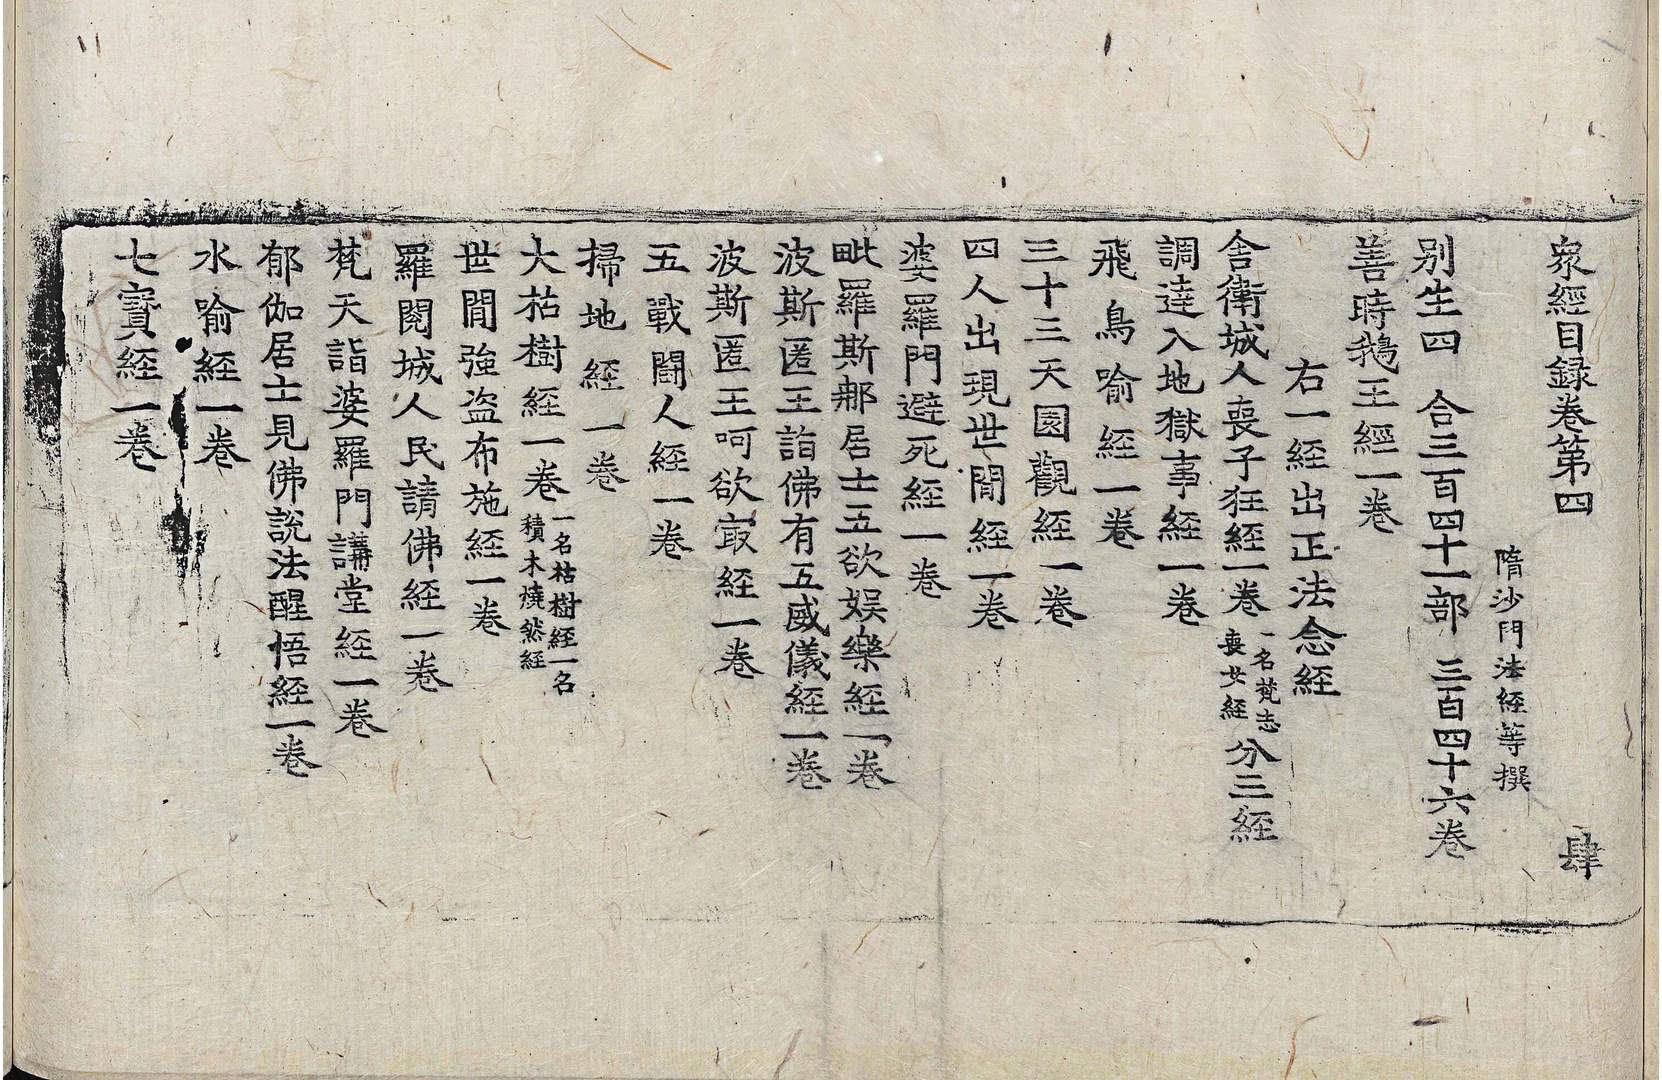 衆經目録卷第四　肆
隋沙門法經等撰
别生四　合三百四十一部　三百四十六卷
善時鵝王經一卷
右一經出正法念經
舍衛城人喪子狂經一卷一名梵志喪女經分三經
調達入地獄事經一卷
飛鳥喻經一卷
三十三天園觀經一卷
四人出現世間經一卷
婆羅門避死經一卷
毗羅斯那居士五欲娯樂經一卷
波斯匿王詣佛有五威儀經一卷
波斯匿王呵欲㝡經一卷
五戰鬪人經一卷
掃地經一卷
大枯樹經一卷一名枯樹經一名積木燒然經
世間強盗布施經一卷
羅閱城人民請佛經一卷
梵天詣婆羅門講堂經一卷
郁伽居士見佛說法醒悟經一卷
水喻經一卷
七寶經一卷